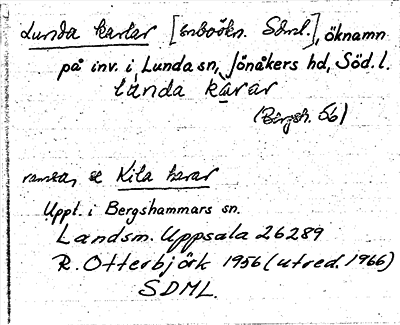 Lunda karlar [inboökn. Sdml.], öknamn
på inv. i Lunda sn, Jönåkers hd, Söd. l.
lúnda kárar
(Bergsh. 56)
ramsa, se Kila karar
Uppt. i Bergshammars sn.
Landsm. Uppsala 26289
R. Otterbjörk 1956 (utred. 1966)
SDML.